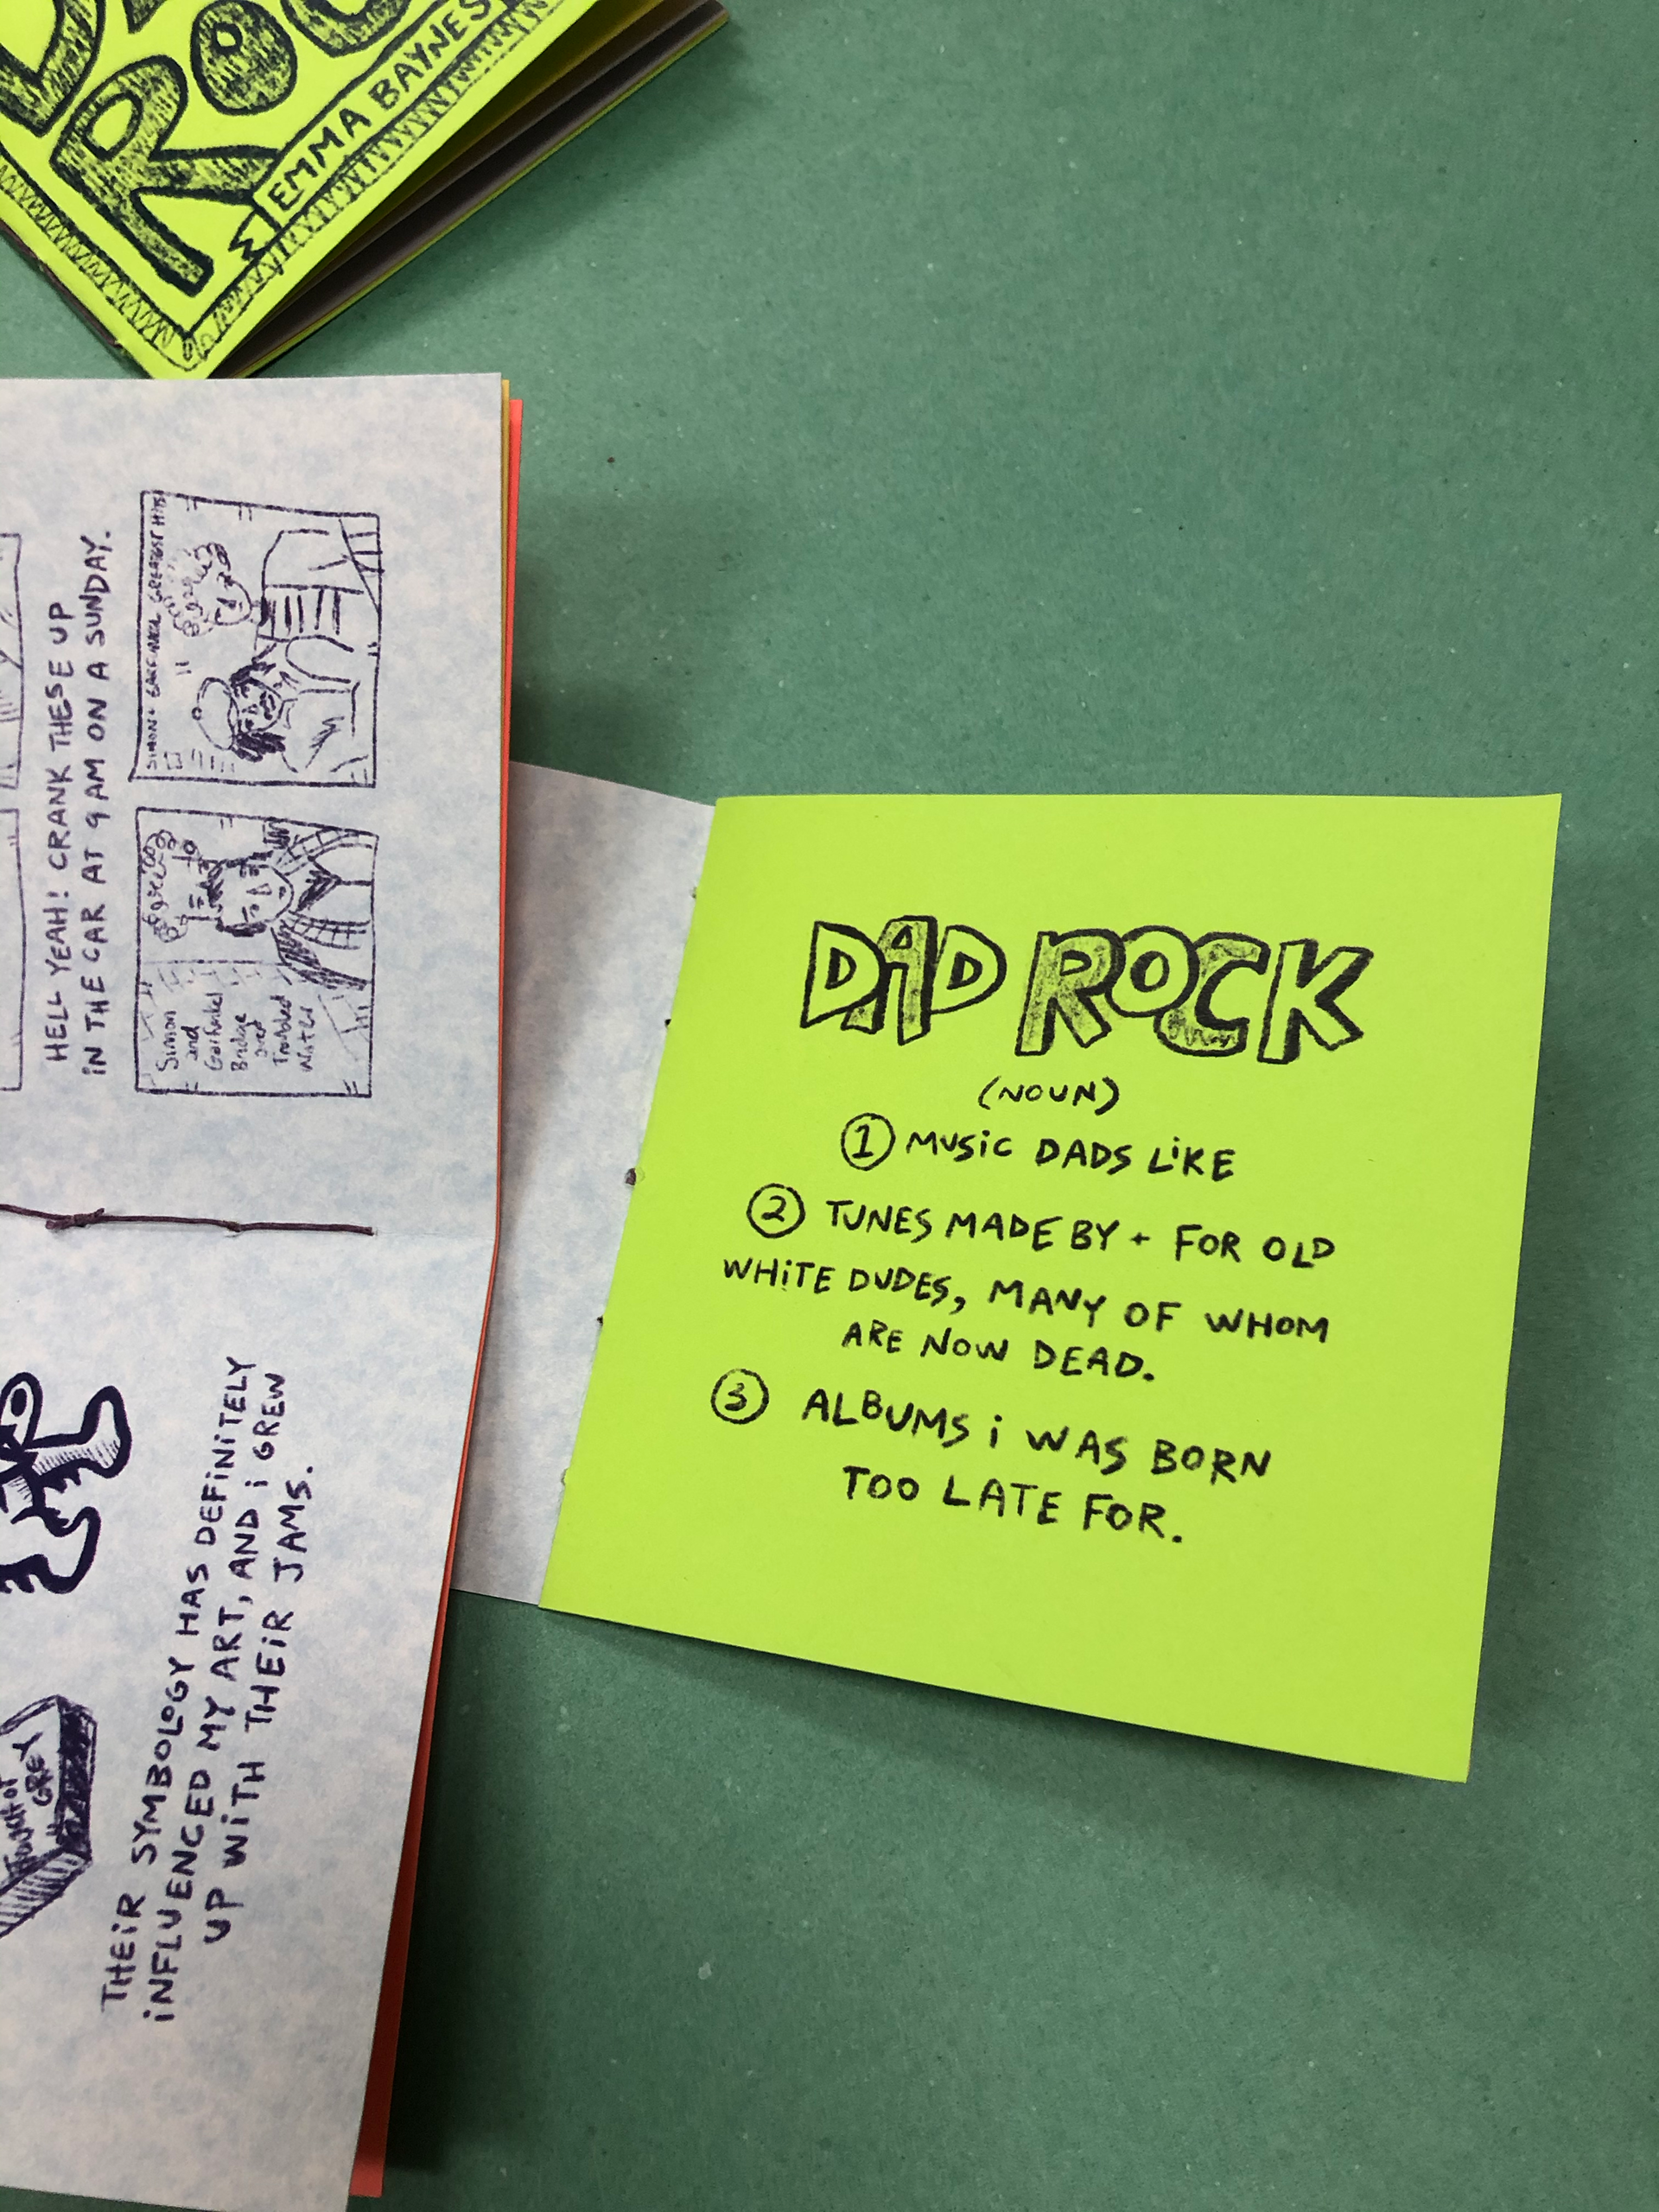 ROC
EMMA BAYNES
HELL YEAH! CRANK THESE UP
iN THE CAR AT 9 AM ON A SUNDAY.
SIMON + GARFUNKEL GREATEST HITS
Simon
and
Garfunkel
Bridge
over
Troubled
Water
THEiR SYMBOLOGY HAS DEFiNiTELY
iNFLUENCED MY ART, AND i GREW
UP WiTH THEiR JAMS.
TOUCH OF
GREY
DAD ROCK
(NOUN)
1 MUSiC DADS LiKE
2 TUNES MADE BY + FOR OLD
WHiTE DUDES, MANY OF WHOM
ARE NOW DEAD.
3 ALBUMS i WAS BORN
TOO LATE FOR.